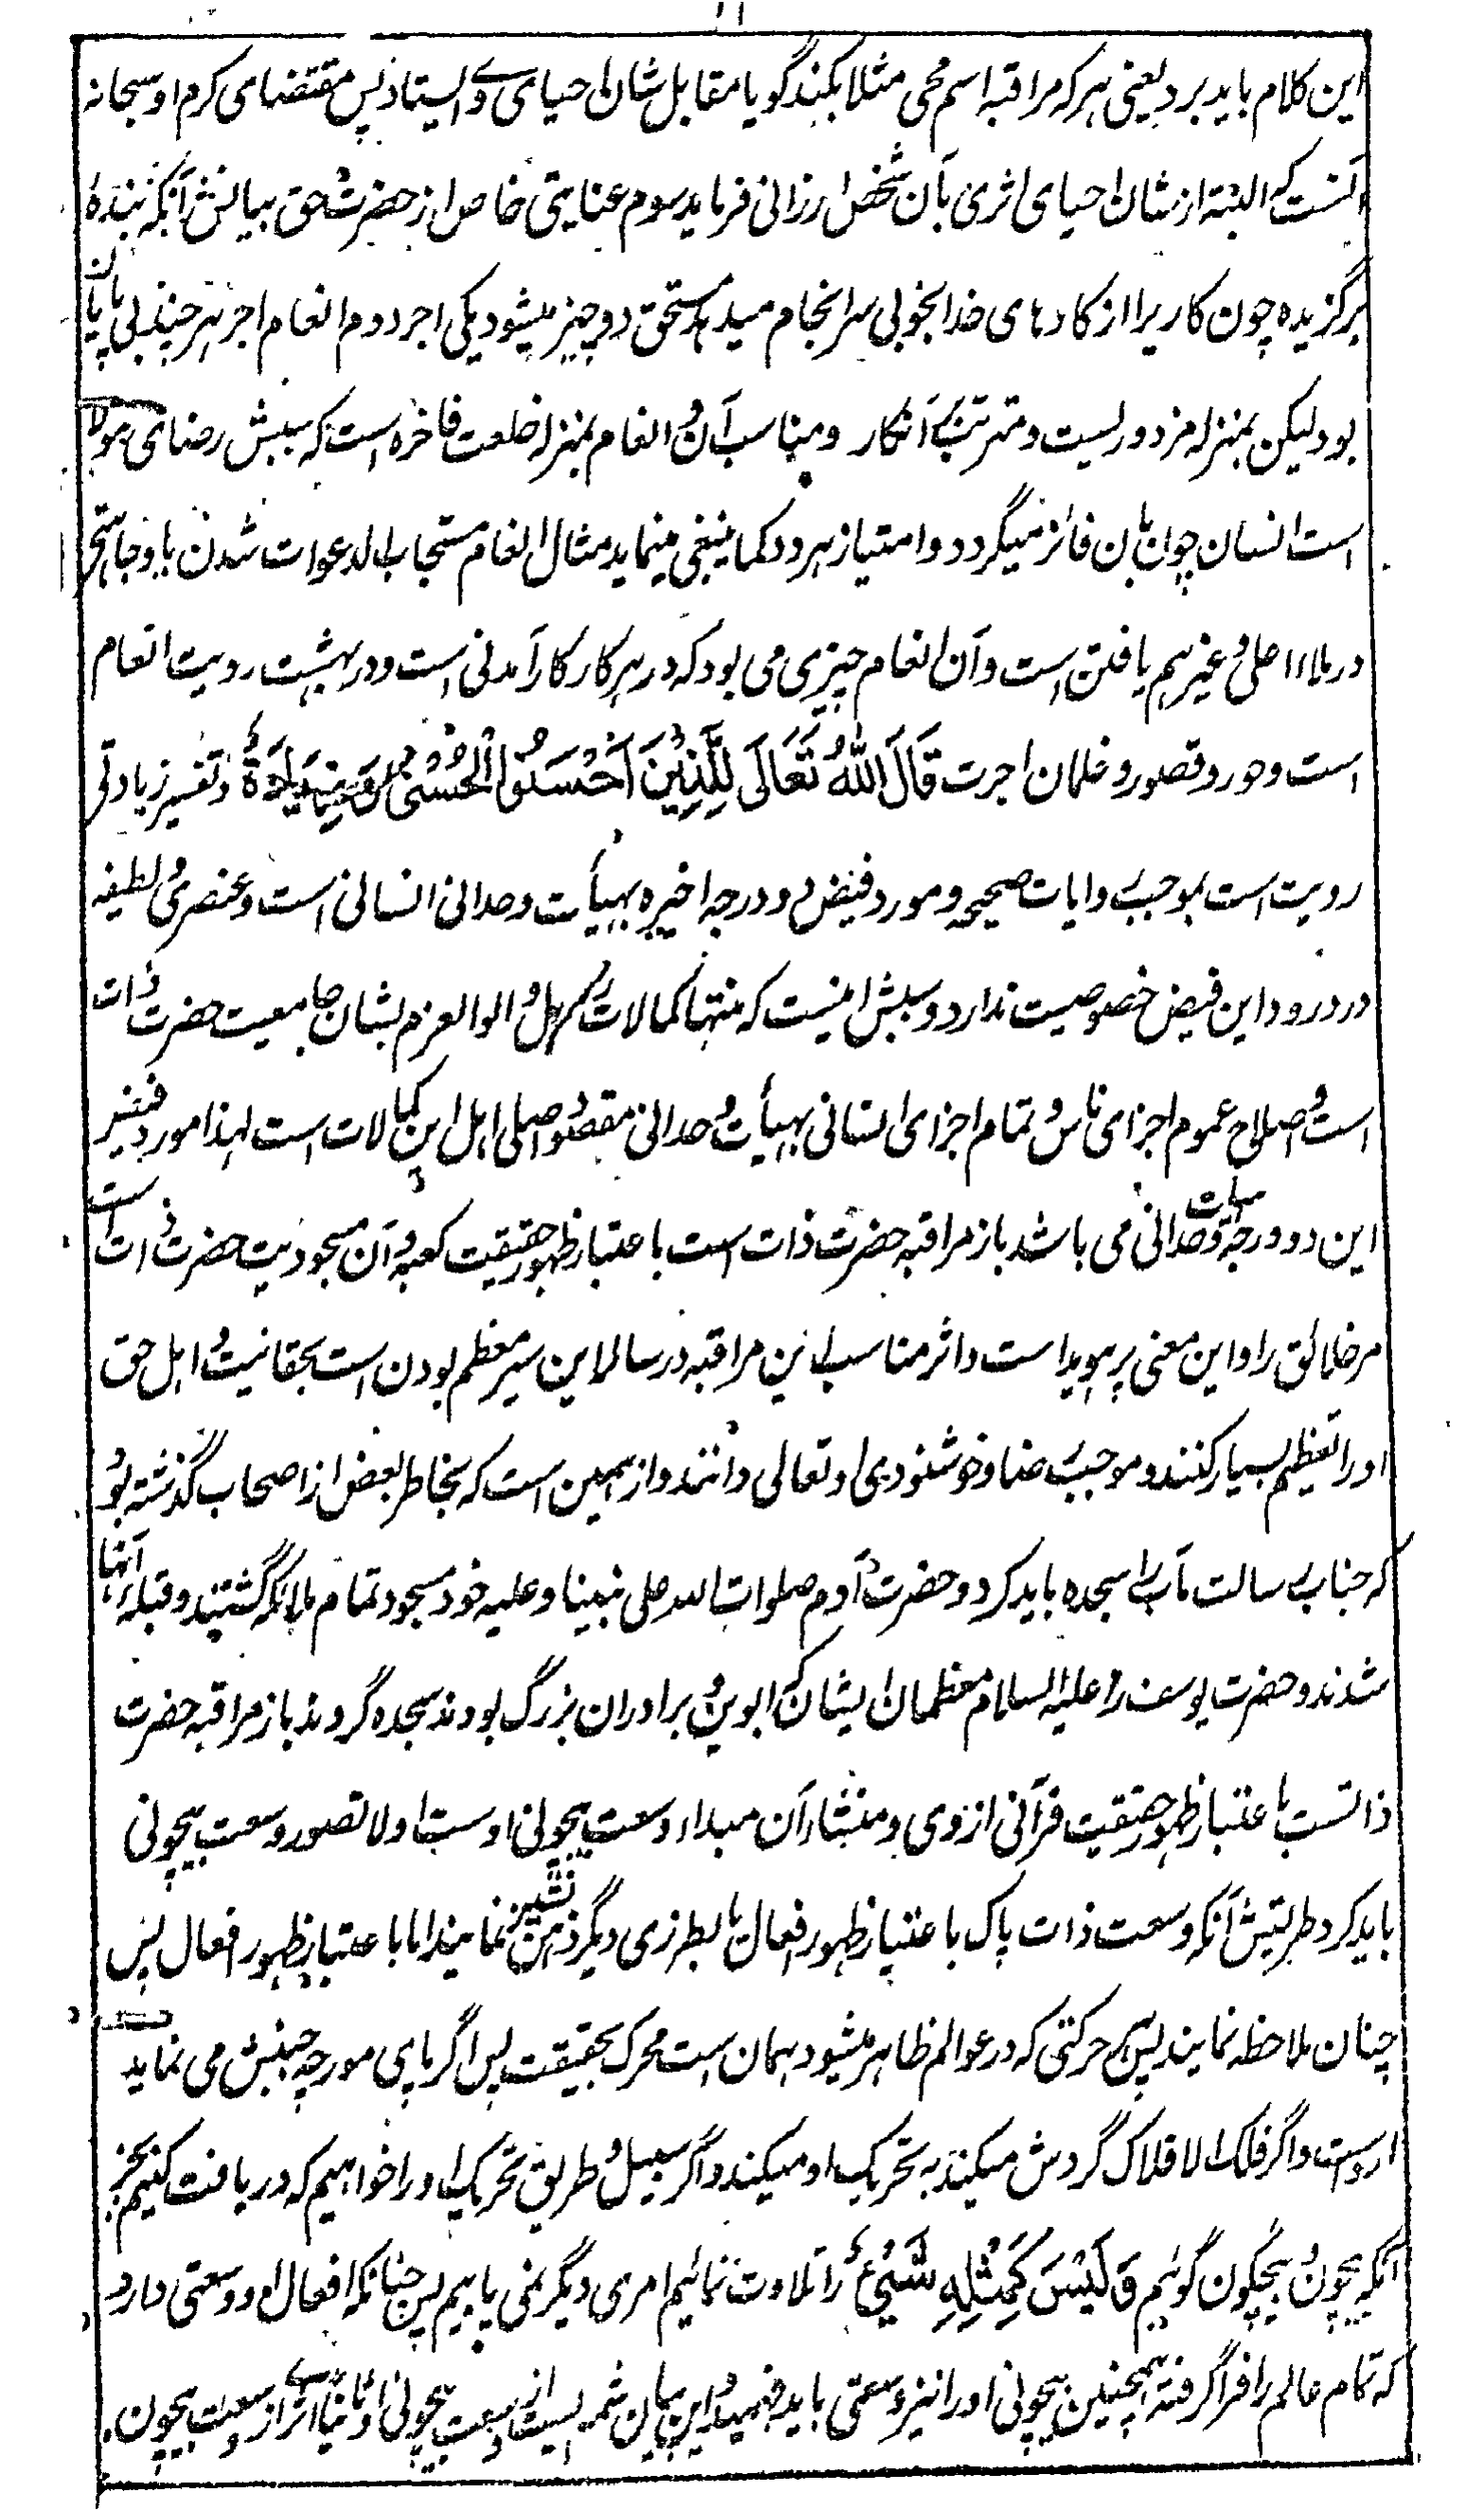 این کلام باید برد یعنی هر که مراقبه اسم محی مثلا بکند گویا مقابل شان احیای وی ایستاد پس مقتضای کرم او سبحانه
آنست که البته از شان احیای اثری بآن شخص ارزانی فرماید سوم عنایتی خاص از حضرت حق بیانش آنکه بندهٔ
برگزیده چون کاریرا از کارهای خدا بخوبی سرانجام میدهد مستحق دو چیز میشود یکی اجر دوم انعام اجر هر چند بی پایان
بود لیکن بمنزله مزدوریست و مترتب بر آنکار و مناسب آن و انعام بمنزله خلعت فاخره است که سببش رضای مولا
است انسان چون بآن فائز میگردد و امتیاز هر دو کما ینبغی مینماید مثال انعام مستجاب الدعوات شدن یا وجاهتی
در ملاء اعلی و غیر هم یافتن است و آن انعام چیزی می بود که در هر کار کارآمدنی است و در بهشت رویت انعام
است و حور و قصور و غلمان اجرت قَالَ اللهُ تَعَالَى لِلَّذِيْنَ اَحْسَنُوا الْحُسْنٰى وَزِيَادَةٌ و تفسیر زیادتی
رویت است بموجب روایات صحیحه و مورد فیض دو درجه اخیره بهیأت وحدانی انسانی است و عنصری و لطیفه
در درود این فیض خصوصیت ندارد و سببش اینست که منتها کمالات رسل و اولوالعزم بشان جامعیت حضرت ذات
است و اصلاح عموم اجزای ناس و تمام اجزای انسانی بهیأت وحدانی مقصود اصلی اهل این کمالات است لهذا مورد فیض
این دو درجه هیأت وحدانی می باشد باز مراقبه حضرت ذات است باعتبار ظهور حقیقت کعبه و آن مسجودیت حضرت ذات است
مر خلائق را و این معنی پر هویدا است و اثر مناسب این مراقبه در سالک این سیر معظم بودن است بحقانیت و اهل حق
او را تعظیم بسیار کنند و موجب رضا و خوشنودی او تعالی دانند و از همین است که بخاطر بعض از اصحاب گذشته بود
که جناب رسالت مآب را سجده باید کرد و حضرت آدم صلوات الله علی نبینا و علیه خود مسجود تمام ملائکه گشتند و قبله آنها
شدند و حضرت یوسف را علیه السلام معظمان ایشان که ابوین و برادران بزرگ بودند سجده کردند باز مراقبه حضرت
ذاتست باعتبار ظهور حقیقت قرآنی از وی و منشاء آن مبداء وسعت بیچونی اوست اولا تصور وسعت بیچونی
باید کرد طریقش آنکه وسعت ذات پاک باعتبار ظهور افعال بطرزی دیگر ذهن نشین نمایند اما باعتبار ظهور افعال پس
چنان ملاحظه نمایند پس هر حرکتی که در عوالم ظاهر میشود همان است محرک بحقیقت پس اگر پای مورچه جنبش می نماید
از وست و اگر فلک الافلاک گردش میکند به تحریک او میکند و اگر سبیل و طریق تحریک او را خواهیم که دریافت کنیم بجز
آنکه بیچون و بیچگون گوئیم و لَيْسَ كَمِثْلِهٖ شَيْئٌ را تلاوت نمائیم امری دیگر نمی یابیم پس چنانکه افعال او وسعتی دارد
که تمام عالم را فرا گرفته همچنین بیچونی او را نیز وسعتی باید فهمید و این بیان شمه ایست از وسعت بیچونی او ثانیا اثری از وسعت بیچون